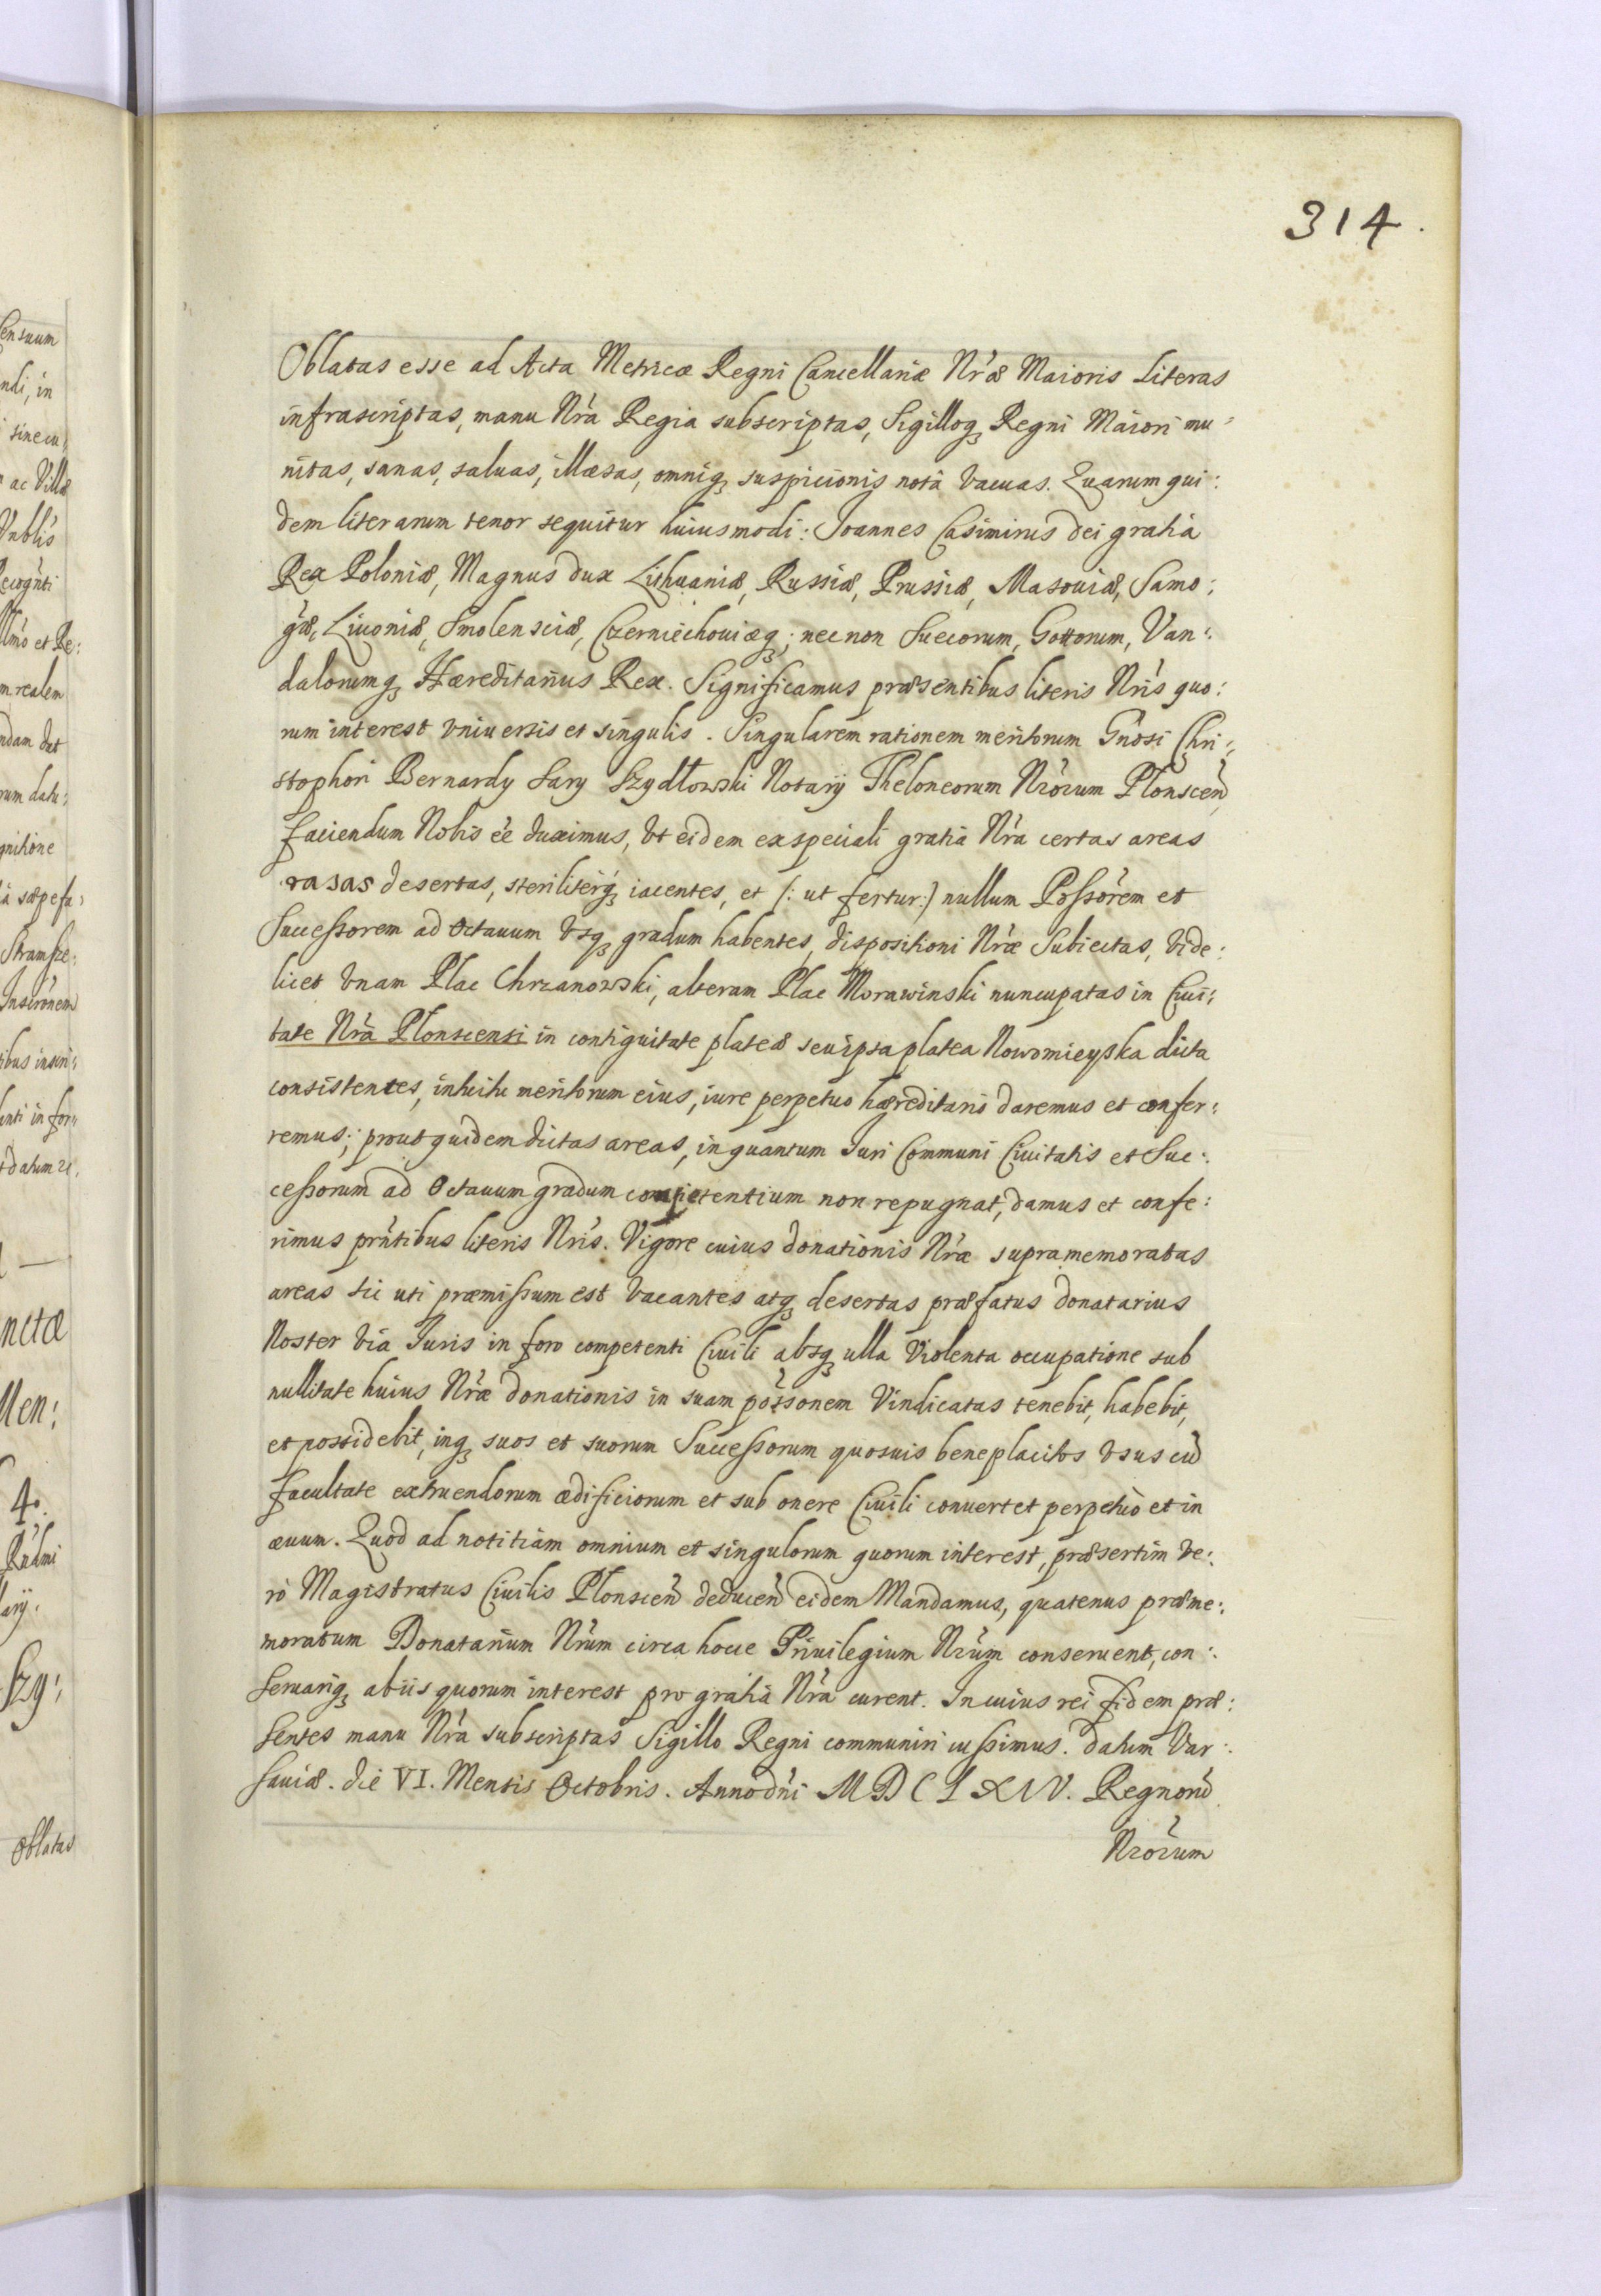 314.
Oblatas esse ad Acta Metricæ Regni Cancellariæ Nr̃æ Maioris Literas
infrascriptas, manu Nr̃a Regia subscriptas, Sigilloq3 Regni Maiori mu:
nitas, sanas, saluas, illæsas, omniq3 suspicionis notâ vacuas. Quarum qui:
dem literarum tenor sequitur huiusmodi: Joannes Casimirus Dei gratia
Rex Poloniæ, Magnus dux Lithuaniæ, Russiæ, Prussiæ, Masouiæ, Samo:
g̃æ, Liuoniæ, Smolensciæ, Czerniechouiæq3; necnon Suecorum, Gottorum, Van:
dalorumq3 Hæreditarius Rex. Significamus præsentibus literis Nr̃is quo:
rum interest vniuersis et singulis. Singularem rationem meritorum Gñosi Chri:
stophori Bernardy Sary Szydłowski Notarÿ Theloneorum Nr̃orum Plonsceñ
faciendum Nobis ẽe duximus, vt eidem ex speciali gratia Nr̃a certas areas
rasas desertas, steriliterq3 iacentes, et (: ut fertur:) nullum Poßorẽm et
Succeßorem ad Octauum vsq3 gradum habentes, dispositioni Nr̃æ Subiectas, vide:
licet vnam Plac Chrzanowski, alteram Plac Morawinski nuncupatas in Ciui:
tate Nr̃a Plonscensi in contiguitate plateæ seu ipsa platea Nowomieyska dicta
consistentes, intuitu meritorum eius, iure perpetuo hæreditario daremus et confer:
remus; prout quidem dictas areas, in quantum Juri Communi Ciuitatis et Suc:
ceßorum ad Octauum gradum competentium non repugnat, damus et confe:
rimus prñtibus literis Nr̃is. Vigore cuius donationis Nr̃æ supramemoratas
areas sic uti præmißum est vacantes atq3 desertas præfatus donatarius
Noster via Juris in foro competenti Ciuili absq3 ulla violenta occupatione sub
nullitate huius Nr̃æ donationis in suam poss̃onem vindicatas tenebit, habebit,
et possidebit, inq3 suos et suorum Succeßorum quosuis beneplacitos vsus cũ
facultate extruendorum ædificiorum et sub onere Ciuili conuertet perpetuò et in
æuum. Quod ad notitiam omnium et singulorum quorum interest, præsertim ve:
rò Magistratus Ciuilis Plonsceñ deduceñ eidem Mandamus, quatenus præme:
moratum Donatarium Nr̃um circa hocce Priuilegium Nr̃um conseruent, con:
seruariq3 ab iis quorum interest pro gratia Nr̃a curent. In cuius rei fidem præ:
sentes manu Nr̃a subscriptas Sigillo Regni communiri iußimus. Datum Var:
sauiæ. die VI. Mensis Octobris. Anno dñi MDCLXIV. Regnorũ
Nr̃orum